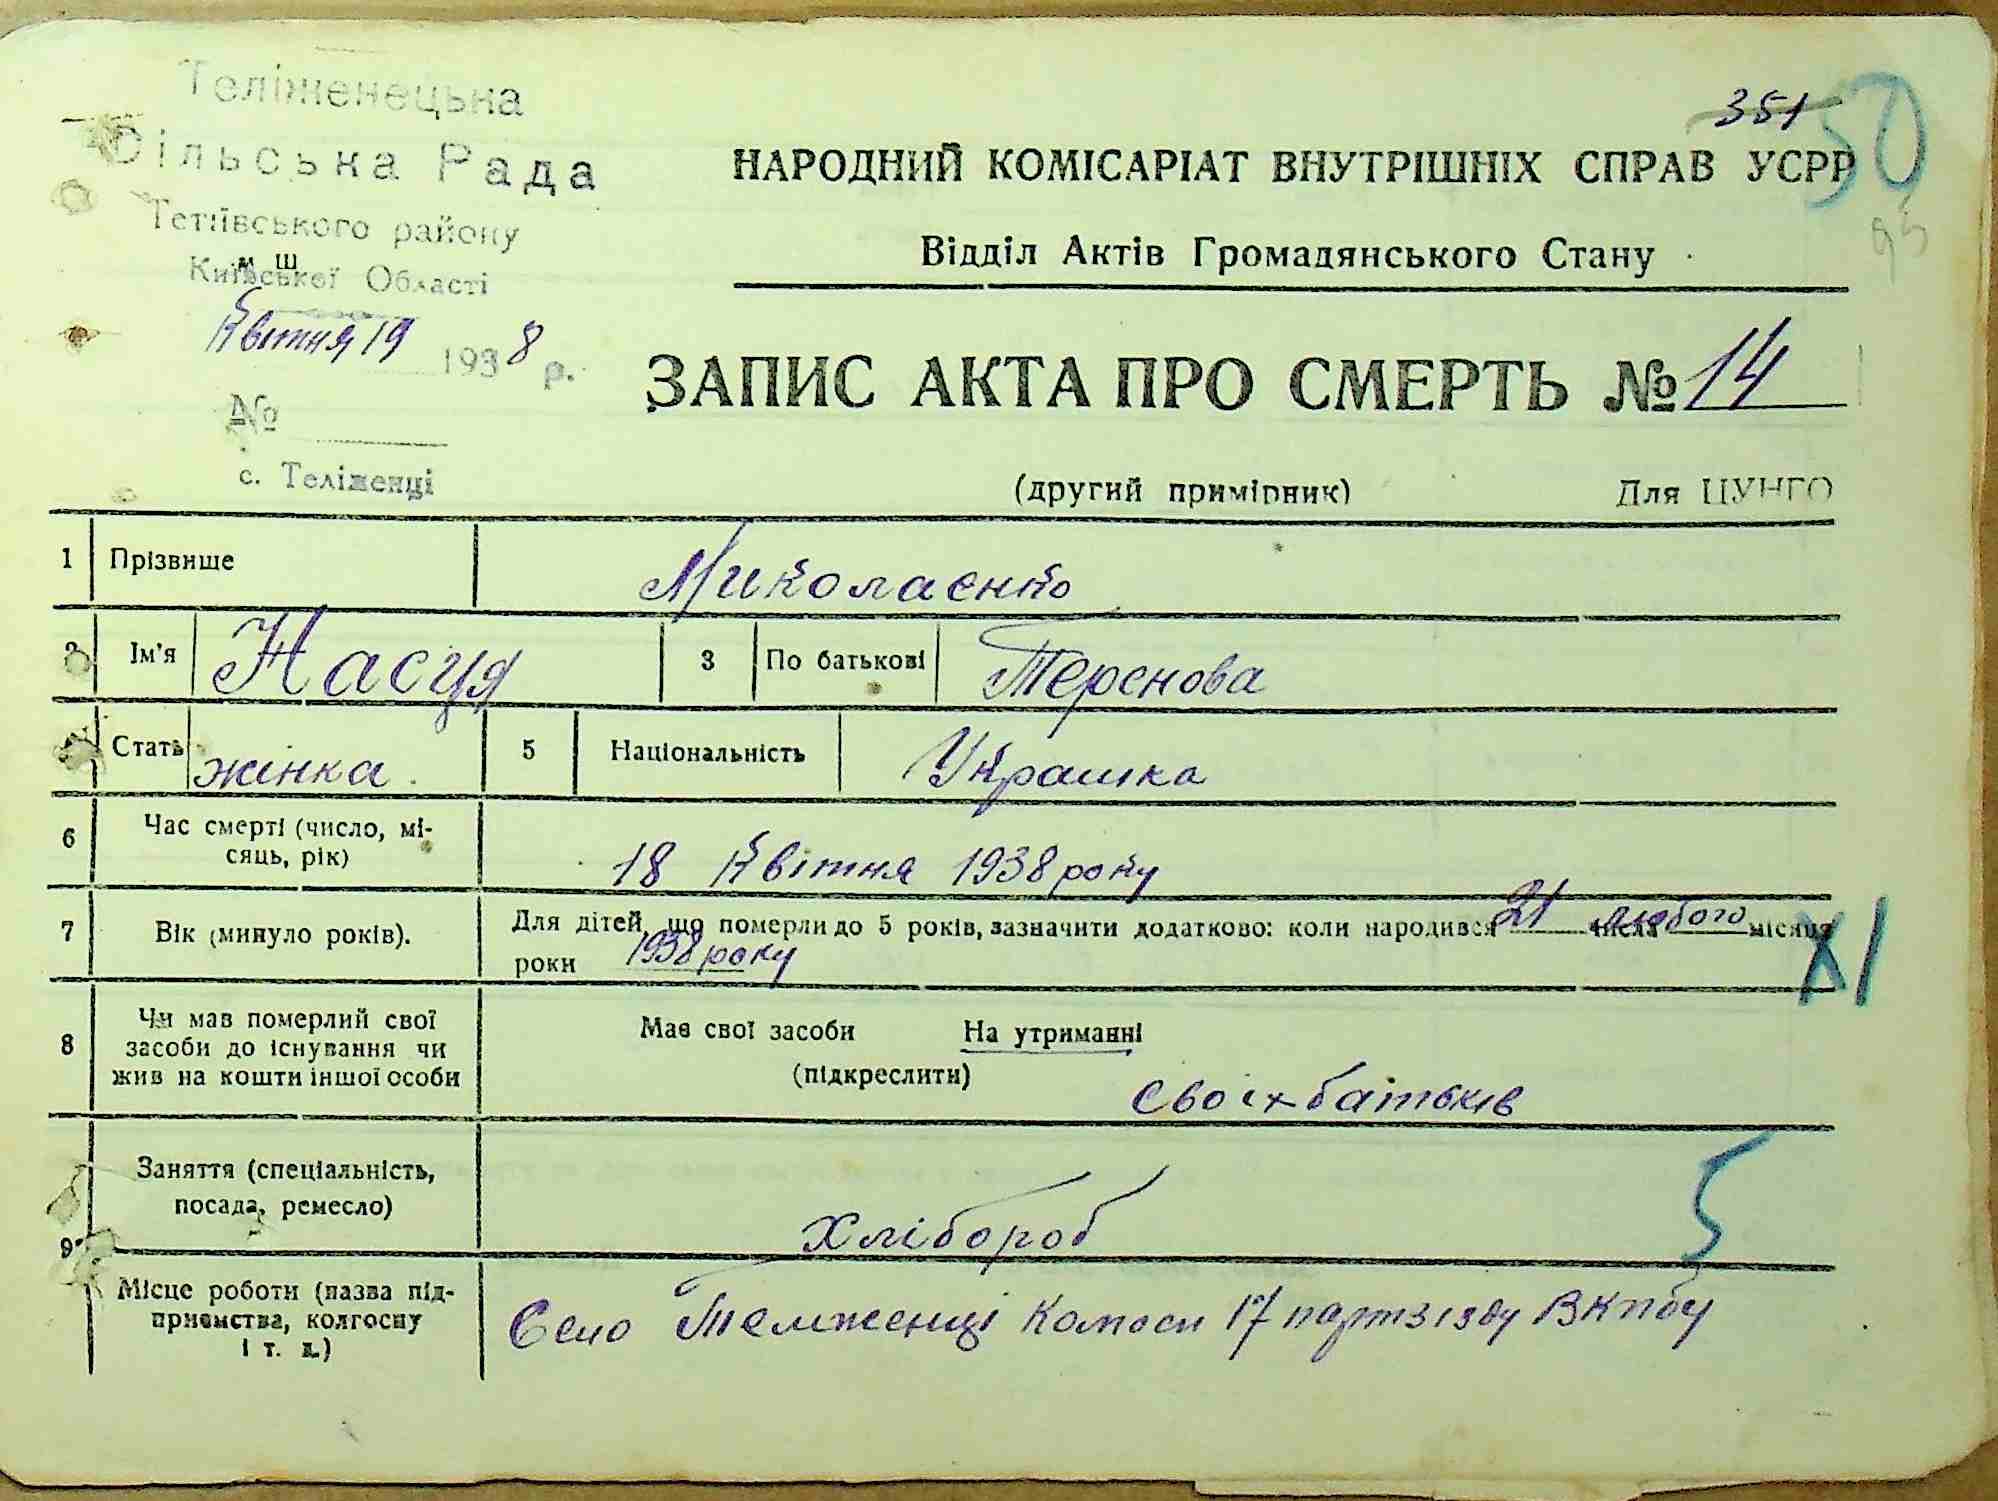 Теліженецька
Сільська Рада
Тетіївського району
м Ш
Київської Області
Квітня 19 1938 р.
№
с. Теліженці
351
50
95
НАРОДНИЙ КОМІСАРІАТ ВНУТРІШНІХ СПРАВ УСРР
Відділ Актів Громадянського Стану
ЗАПИС АКТА ПРО СМЕРТЬ № 14
(другий примірник) Для ЦУНГО
1 Прізвище Миколаєнко
2 Ім'я Насця 3 По батькові Тереновa
Стать жінка 5 Національність Украінка
6 Час смерті (число, мі-
сяць, рік) 18 Квітня 1938 року
7 Вік (минуло років). Для дітей, що померли до 5 років, зазначити додатково: коли народився 21 числа лютого місяця
роки 1938 року
XI
8 Чи мав померлий свої
засоби до існування чи
жив на кошти іншої особи
Має свої засоби На утриманні
(підкреслити)
своіх батьків
Заняття (спеціальність,
посада, ремесло) Хлібороб
5
9
Місце роботи (назва під-
приємства, колгоспу
і т. д.)
Село Теліженці Колгосп 17 партзізду ВКПбу